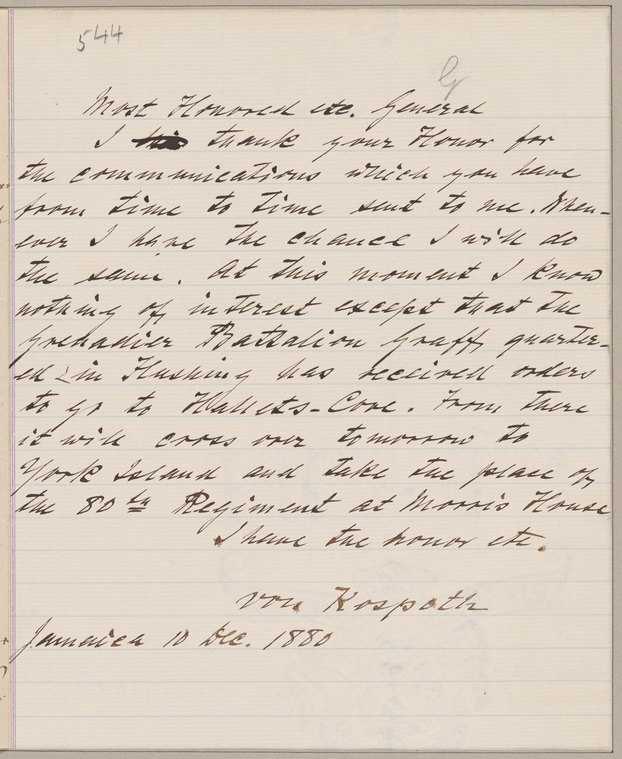 544
G
Most Honored etc. General
I thank your Honor for
the communications which you have
from time to time sent to me. When-
ever I have the chance I will do
the same. At this moment I know
nothing of interest except that the
Grenadier Battalion Graff, quarter-
ed in Flushing has received orders
to go to Hallets-Cove. From there
it will cross over tomorrow to
York Island and take the place of
the 80th Regiment at Morris House
I have the honor etc.
von Kospoth
Jamaica 10 Dec. 1880